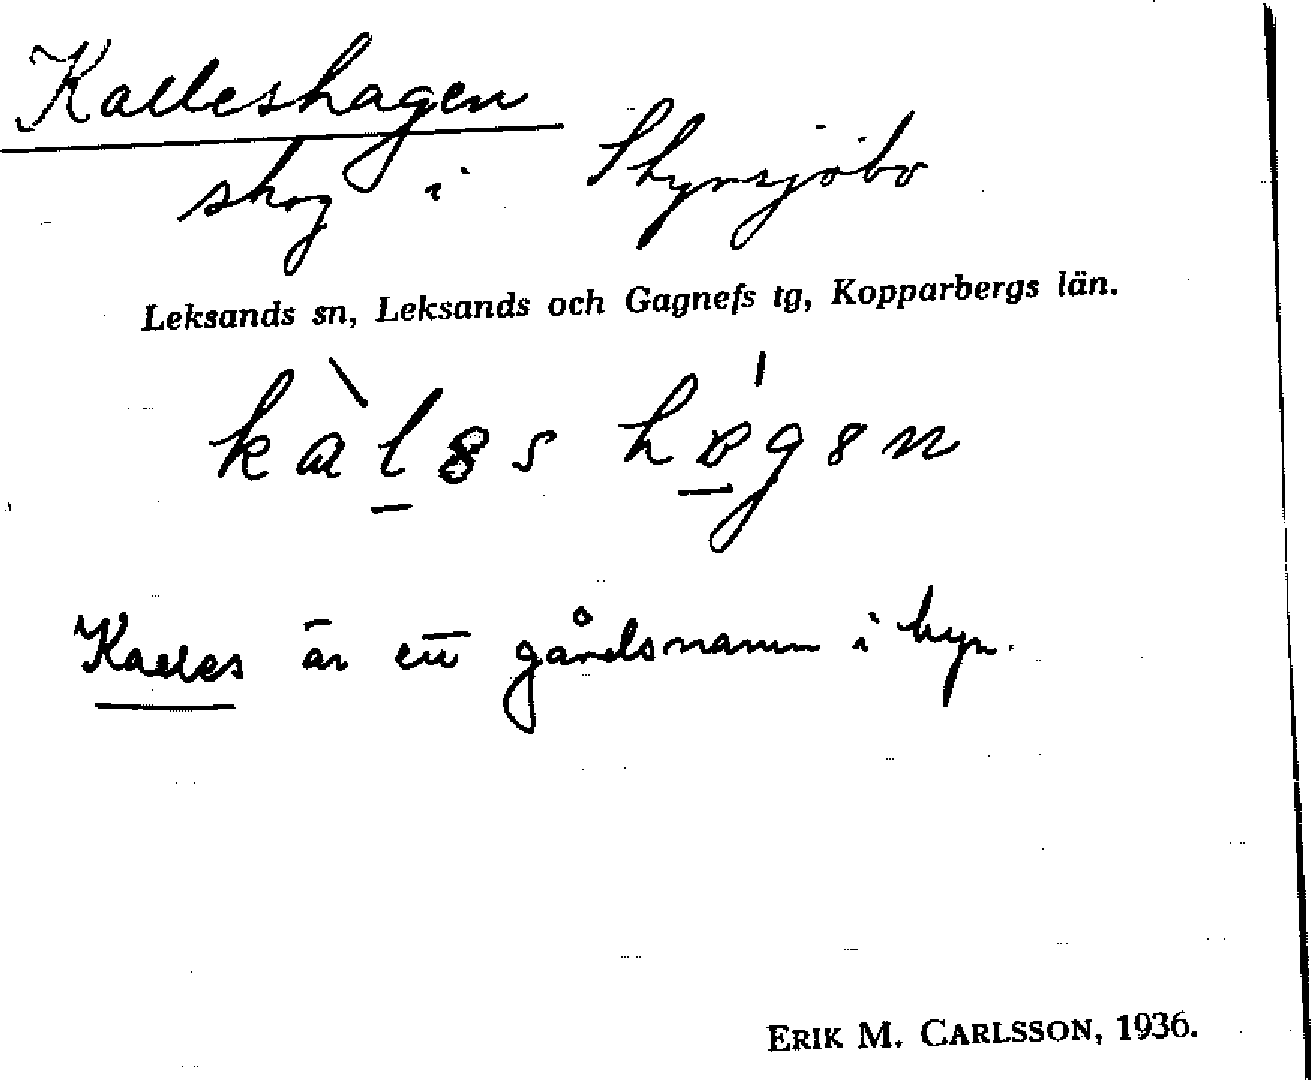 Kalleshagen
skog i Styrsjöbo
Leksands sn, Leksands och Gagnefs tg, Kopparbergs län.
Kalles är ett gårdsnamn i byn.
ERIK M. CARLSSON, 1936.